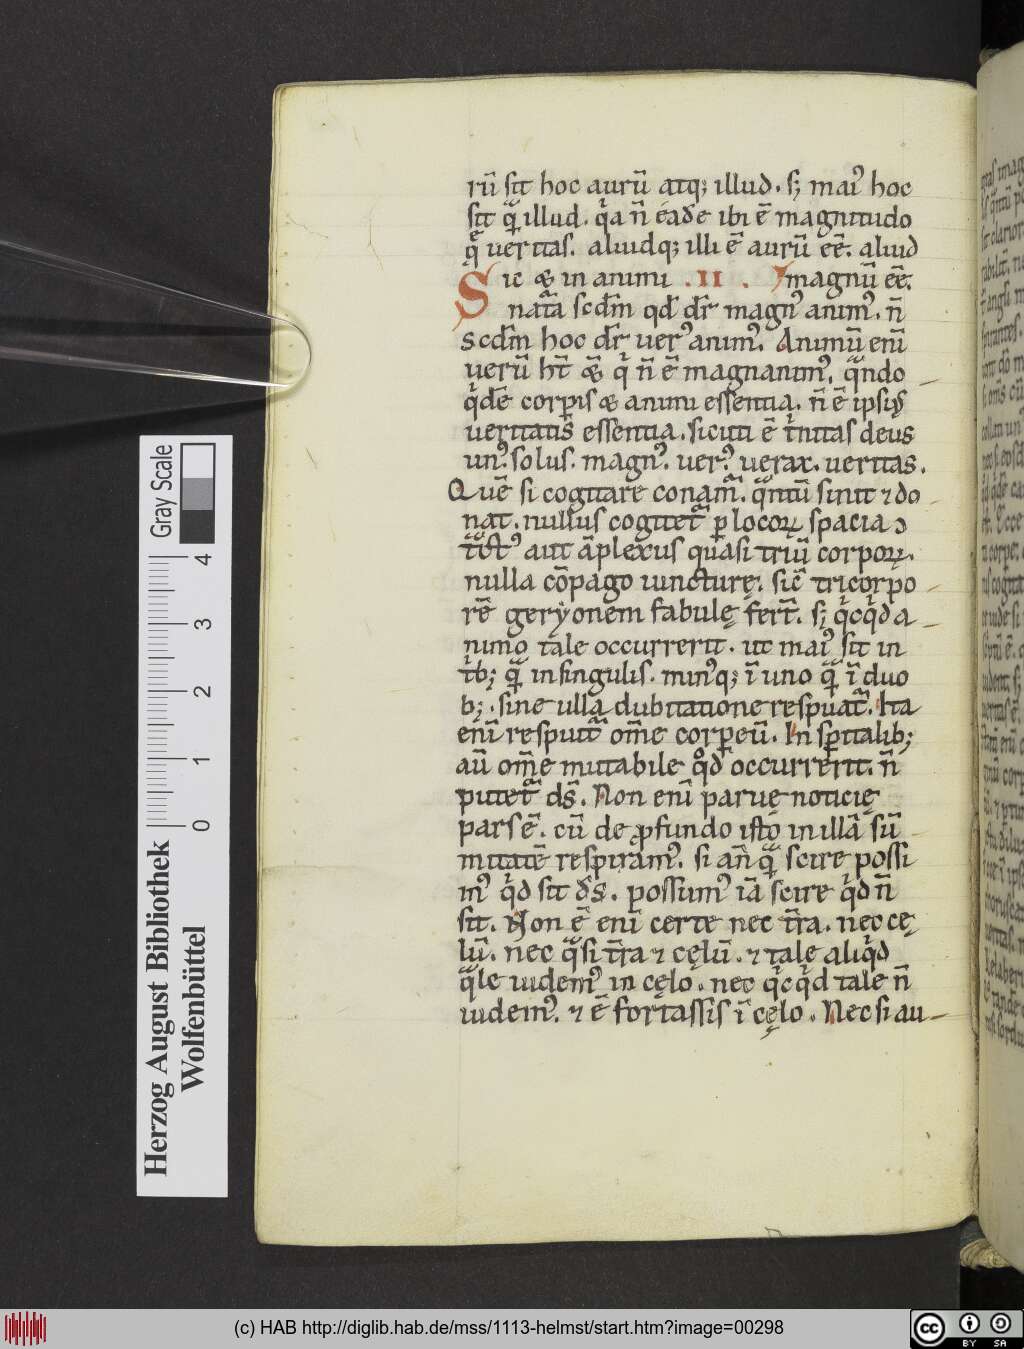 rū sit hoc aurū atq; illud. s; mai᾽ hoc
sit qͣ illud. qͥa n̄ eadē ibi ē magnitudo
q̄ ueritas. aliudq; illi ē aurū eē. aliud
Sic & in animi .II. magnū eē.
natͣa scd̄m qd dr̄ magn᾽ anim᾽. n̄
scd̄m hoc dr̄ uer᾽ anim᾽. Animū eni̅
uerū ht̄ & qͥ n̄ ē magnanim᾽. qͣndo
qͥdē corpis & animi essentia. n̄ ē ipsi᾽
ueritatis essentia. sicuti ē tͥnitas deus
un᾽. solus. magn᾽. uer᾽. uerax. ueritas.
Quē si cogitare conamͬ. qͣntū sinit ⁊ do
nat. nullus cogitetͬ p locoꝝ spacia ɔ
tͣct᾽ aut āplexus quasi triū corpoꝝ.
nulla cōpago iuncturę. sic̄ tricorpo
rē geryonem fabulę fert̄. s; qͥcqͥd a
nimo tale occurrerit. ut mai᾽ sit in
tͥb; qͣ in singulis. min᾽q; ī uno qͣ ī duo
b;. sine ulla dubitatione respuatͬ. Ita
eni̅ respuitͬ om̄e corpeū. In spitalib;
aū om̄e mutabile qͦd occurrerit. n̄
putetͬ ds̄. Non eni̅ paruę noticię
pars ē. cū de ꝓfundo isto in illā sū
mitatē respiram᾽. si an̄ qͣ scire possi
m᾽ qͥd sit ds̄. possum᾽ iā scire qͥd n̄
sit. Non ē eni̅ certe nec t̄ra. nec cę
lū. nec qͣsi t̄ra ⁊ cęlū. ⁊ tale aliqͥd
qͣle uidem᾽ in cęlo. nec qͥcqͥd tale n̄
uidem᾽. ⁊ ē fortassis ī cęlo. Nec si au
Gray Scale
0 1 2 3 4
Herzog August Bibliothek
Wolfenbüttel
(c) HAB http://diglib.hab.de/mss/1113-helmst/start.htm?image=00298
cc BY SA